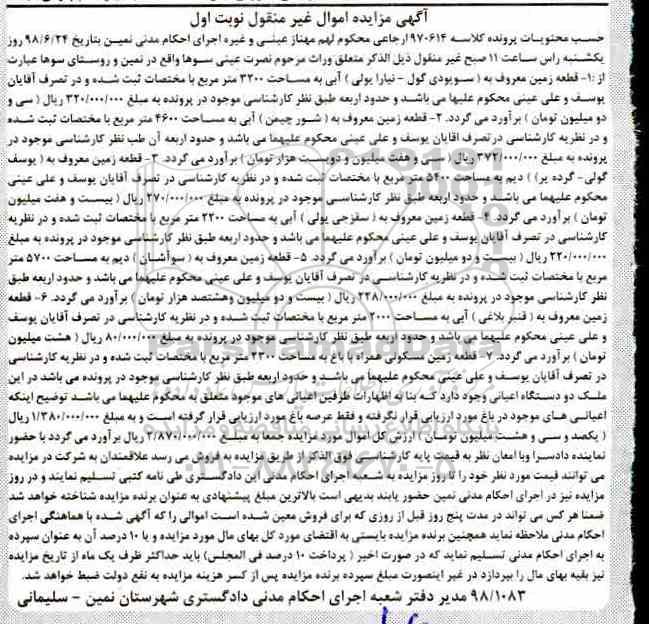 آگهی مزایده اموال غیر منقول نوبت اول
حسب محتویات پرونده کلاسه ۹۷۰۶۱۴ ارجاعی محکوم لهم مهناز عینی و غیره اجرای احکام مدنی نمین بتاریخ ۹۸/۶/۲۴ روز
یکشنبه راس ساعت ۱۱ صبح غیر منقول ذیل الذکر متعلق وراث مرحوم نصرت عینی سوها واقع در نمین و روستای سوها عبارت
از :۱- قطعه زمین معروف به ( سویودی گول - نیارا یولی ) آبی به مساحت ۳۲۰۰ متر مربع با مختصات ثبت شده و در تصرف آقایان
یوسف و علی عینی محکوم علیهما می باشد و حدود اربعه طبق نظر کارشناسی موجود در پرونده به مبلغ ۳۲۰/۰۰۰/۰۰۰ ریال ( سی و
دو میلیون تومان ) برآورد می گردد. ۲- قطعه زمین معروف به ( شور چیمن ) آبی به مساحت ۴۶۰۰ متر مربع با مختصات ثبت شده
و در نظریه کارشناسی در تصرف اقایان یوسف و علی عینی محکوم علیهما می باشد و حدود اربعه آن طب نظر کارشناسی موجود در
پرونده به مبلغ ۳۷۲/۰۰۰/۰۰۰ ریال ( سی و هفت میلیون و دویست هزار تومان ) برآورد می گردد. ۳- قطعه زمین معروف به ( یوسف
گولی- گرده یر) ) دیم به مساحت ۵۴۰۰ متر مربع با مختصات ثبت شده و در نظریه کارشناسی در تصرف آقایان یوسف و علی عینی
محکوم علیهما می باشد و حدود اربعه طبق نظر کارشناسی موجود در پرونده به مبلغ ۲۷۰/۰۰۰/۰۰۰ ریال ( بیست و هفت میلیون
تومان ) برآورد می گردد. ۴- قطعه زمین معروف به ( سقزجی یولی ) آبی به مساحت ۲۲۰۰ متر مربع با مختصات ثبت شده و در نظریه
کارشناسی در تصرف آقایان یوسف و علی عینی محکوم علیهما می باشد و حدود اربعه طبق نظر کارشناسی موجود در پرونده به مبلغ
۲۲۰/۰۰۰/۰۰۰ ریال ( بیست و دو میلیون تومان ) برآورد می گردد. ۵- قطعه زمین معروف به ( سوآشان ) دیم به مساحت ۵۷۰۰ متر
مربع با مختصات ثبت شده و در نظریه کارشناسی در تصرف آقایان یوسف و علی عینی محکوم علیهما می باشد و حدود اربعه طبق
نظر کارشناسی موجود در پرونده به مبلغ ۲۲۸/۰۰۰/۰۰۰ ریال ( بیست و دو میلیون وهشتصد هزار تومان ) برآورد می گردد. ۶- قطعه
زمین معروف به ( قنبر بلاغی ) آبی به مساحت ۲۰۰۰ متر مربع با مختصات ثبت شده و در نظریه کارشناسی در تصرف آقایان یوسف
و علی عینی محکوم علیهما می باشد و حدود اربعه طبق نظر کارشناسی موجود در پرونده به مبلغ ۸۰/۰۰۰/۰۰۰ ریال ( هشت میلیون
تومان ) برآورد می گردد. ۷- قطعه زمین مسکونی همراه با باغ به مساحت ۲۳۰۰ متر مربع با مختصات ثبت شده و در نظریه کارشناسی
در تصرف آقایان یوسف و علی عینی محکوم علیهما می باشد و حدود اربعه طبق نظر کارشناسی موجود در پرونده می باشد در این
ملک دو دستگاه اعیانی وجود دارد که بنا به اظهارات طرفین اعیانی های موجود متعلق به محکوم علیهما می باشد توضیح اینکه
اعیانی های موجود در باغ مورد ارزیابی قرار نگرفته و فقط عرصه باغ مورد ارزیابی قرار گرفته است و به مبلغ ۱/۳۸۰/۰۰۰/۰۰۰ ریال
( یکصد و سی و هشت میلیون تومان ) ارزش کل اموال مورد مزایده جمعا به مبلغ ۲/۸۷۰/۰۰۰/۰۰۰ ریال برآورد می گردد با حضور
نماینده دادسرا وبا امعان نظر به قیمت پایه کارشناسی فوق الذکر از طریق مزایده به فروش می رسد علاقمندان به شرکت در مزایده
می توانند قیمت مورد نظر خود را تا روز مزایده به شعبه اجرای احکام مدنی این دادگستری طی نامه کتبی تسلیم نمایند و در روز
مزایده نیز در اجرای احکام مدنی نمین حضور یابند بدیهی است بالاترین مبلغ پیشنهادی به عنوان برنده مزایده شناخته خواهد شد
ضمنا هر کس می تواند در مدت پنج روز قبل از روزی که برای فروش معین شده است اموالی را که آگهی شده با هماهنگی اجرای
احکام مدنی ملاحظه نماید همچنین برنده مزایده بایستی به اقتضای مورد کل بهای مال مورد مزایده و یا ۱۰ درصد آن به عنوان سپرده
به اجرای احکام مدنی تسلیم نماید که در صورت اخیر ( پرداخت ۱۰ درصد فی المجلس) باید حداکثر ظرف یک ماه از تاریخ مزایده
نیز بقیه بهای مال را بپردازد در غیر اینصورت مبلغ سپرده برنده مزایده پس از کسر هزینه مزایده به نفع دولت ضبط خواهد شد.
۹۸/۱۰۸۳ مدیر دفتر شعبه اجرای احکام مدنی دادگستری شهرستان نمین - سلیمانی